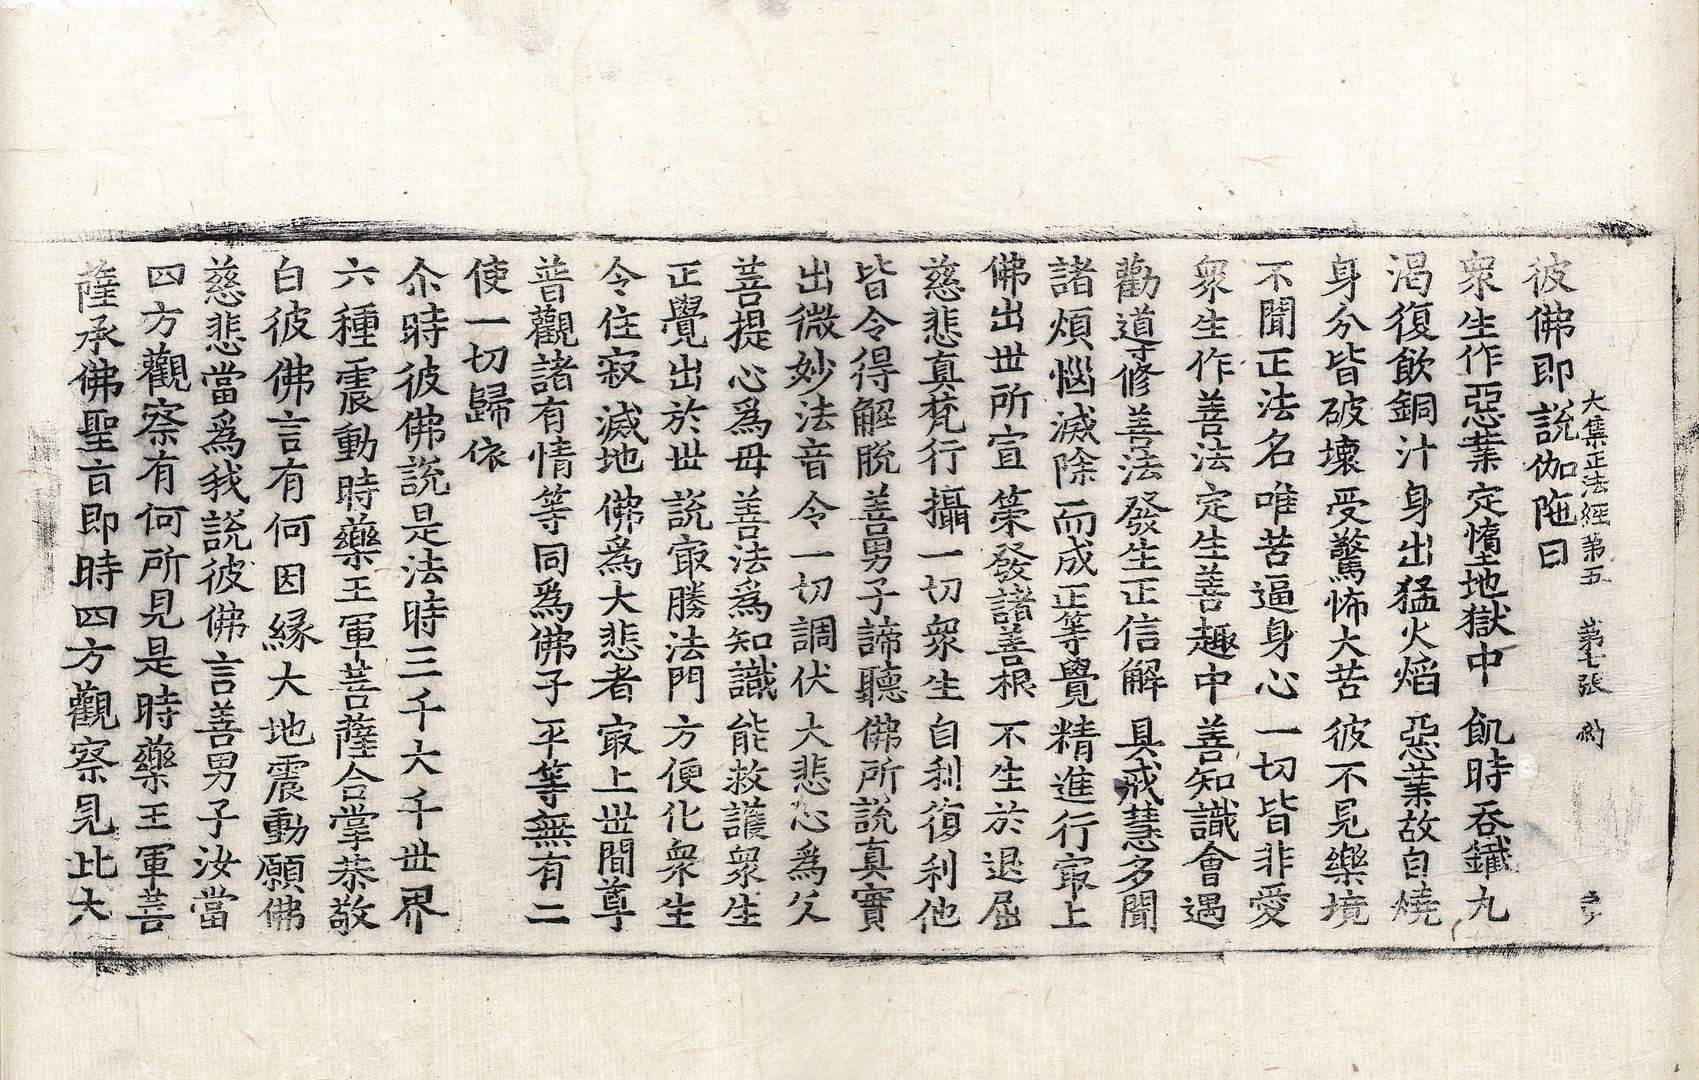 大集正法經第五　第七張　約
彼佛即說伽陁曰
衆生作惡業　定墮地獄中　飢時吞鐵丸
渴復飲銅汁　身出猛火焰　惡業故自燒
身分皆破壞　受驚怖大苦　彼不見樂境
不聞正法名　唯苦逼身心　一切皆非愛
衆生作善法　定生善趣中　善知識會遇
勸道修善法　發生正信解　具戒慧多聞
諸煩惱滅除　而成正等覺　精進行㝡上
佛出世所宣　策發諸善根　不生於退屈
慈悲真梵行　攝一切衆生　自利復利他
皆令得解脫　善男子諦聽　佛所說真實
出微妙法音　令一切調伏　大悲心爲父
菩提心爲母　善法爲知識　能救護衆生
正覺出於世　說㝡勝法門　方便化衆生
令住寂滅地　佛爲大悲者　㝡上世間尊
普觀諸有情　等同爲佛子　平等無有二
使一切歸依
尒時彼佛說是法時三千大千世界
六種震動時藥王軍菩薩合掌恭敬
白彼佛言有何因緣大地震動願佛
慈悲當爲我說彼佛言善男子汝當
四方觀察有何所見是時藥王軍菩
薩承佛聖旨即時四方觀察見此大